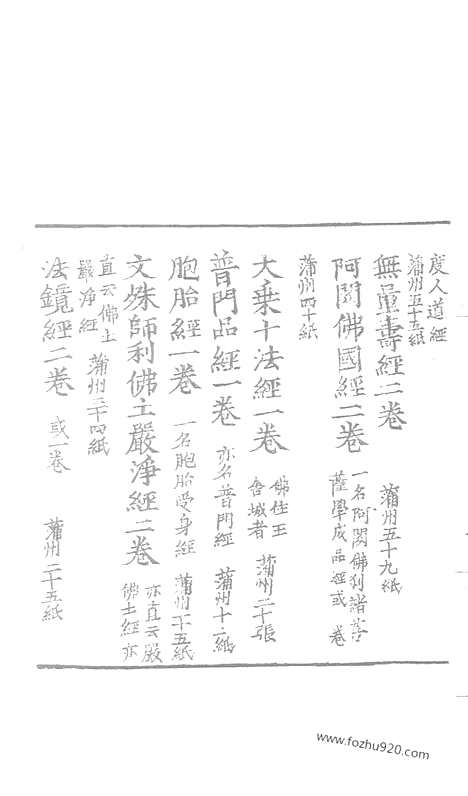 度人道經
蒲州五十五紙
無量壽經二卷 蒲州五十九紙
阿閦佛國經二卷 一名阿閦佛刹諸菩
薩學成品經或 卷
蒲州四十紙
大乘十法經一卷 佛住王
舍城者 蒲州二十張
普門品經一卷 亦名普門經 蒲州十六紙
胞胎經一卷 一名胞胎受身經 蒲州十五紙
文殊師利佛土嚴淨經二卷 亦直云嚴
佛土經亦
直云佛土
嚴淨經 蒲州三十四紙
法鏡經二卷 或一卷 蒲州二十五紙
www.fozhu920.com